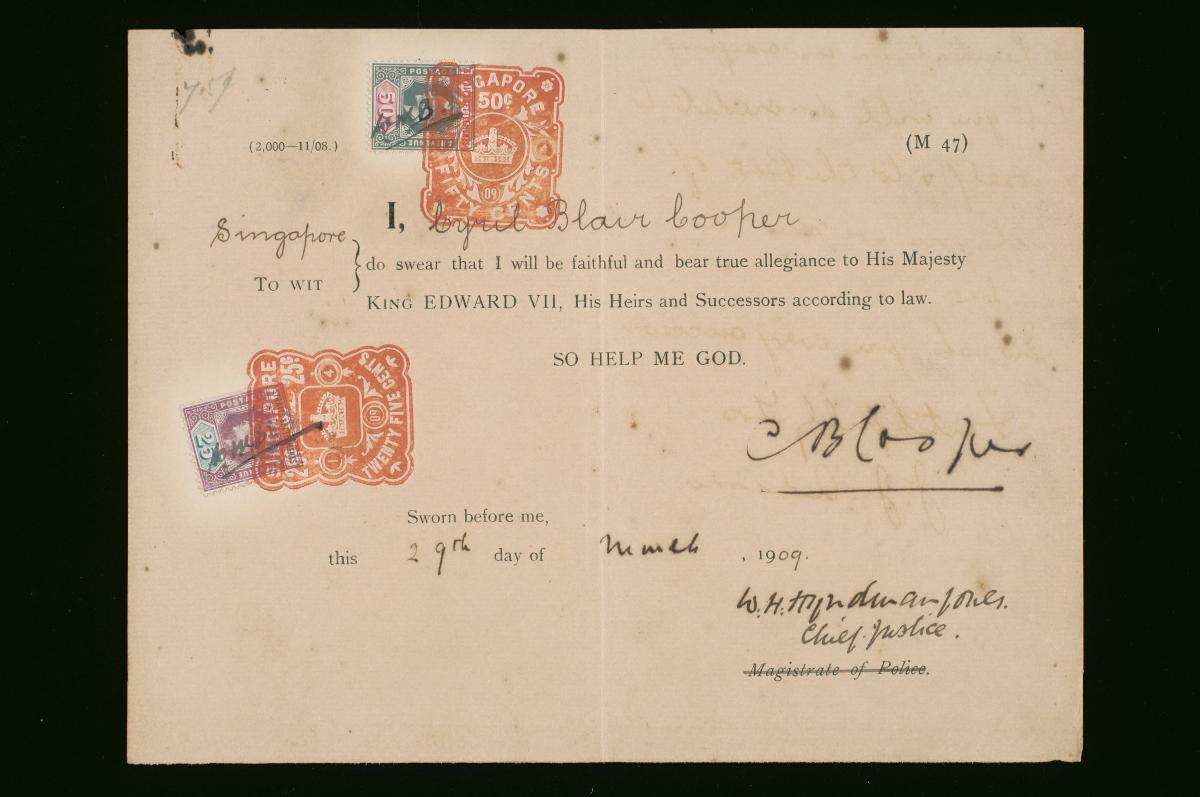 7.59
(2,000—11/08.)
POSTAGE
50
REVENUE
SINGAPORE
50c
09
FIFTY CENTS
(M 47)
Singapore
TO WIT
I, Cyril Blair Cooper
do swear that I will be faithful and bear true allegiance to His Majesty
KING EDWARD VII, His Heirs and Successors according to law.
SO HELP ME GOD.
POSTAGE
25
SINGAPORE
25c.
4
09
1
TWENTY FIVE CENTS
CBCooper
Sworn before me,
this 29th day of March, 1909.
W. H. Hyndman Jones.
Chief Justice.
Magistrate of Police.